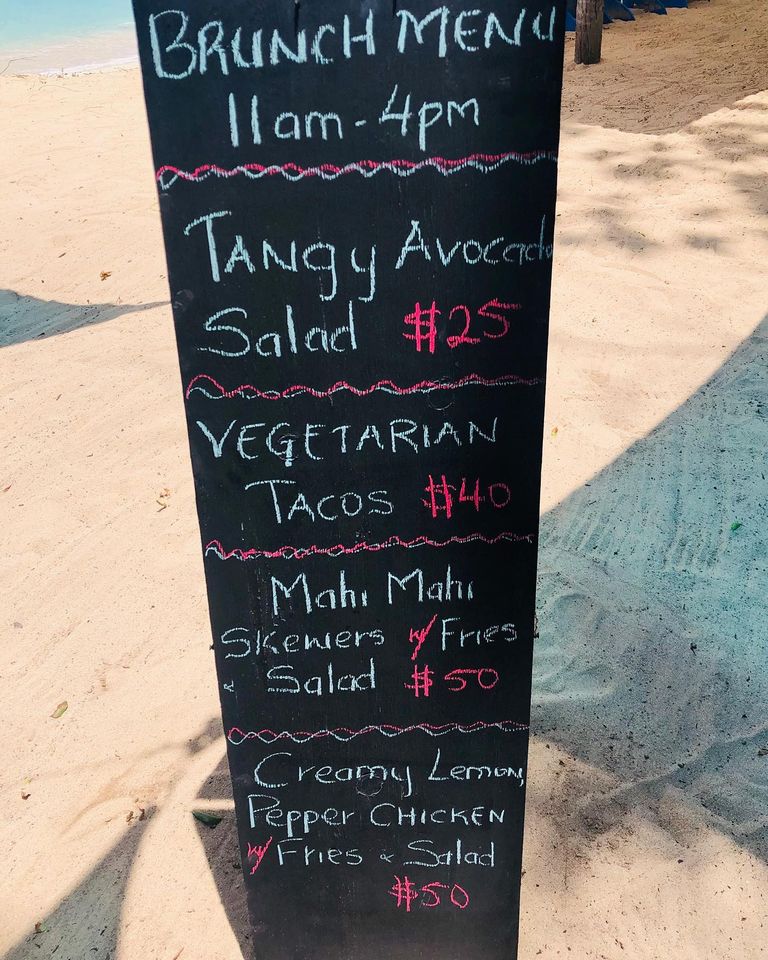 BRUNCH MENU
11am - 4pm
TANGY AVOCADO
Salad $25
VEGETARIAN
TACOS $40
Mahi Mahi
Skewers w/ Fries
& Salad $50
Creamy Lemon,
Pepper CHICKEN
w/ Fries & Salad
$50